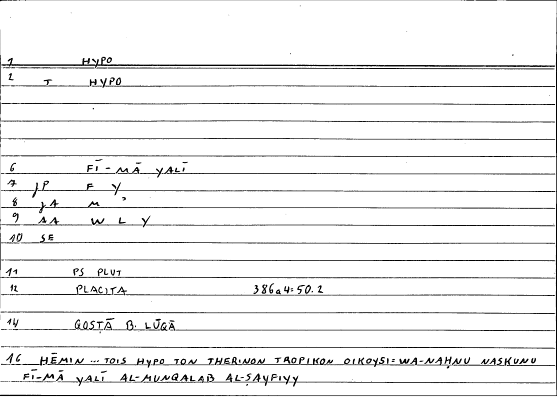 1 HYPO
2 T HYPO
6 FĪ-MĀ YALĪ
7 JP F Y
8 JA M ʾ
9 AA W L Y
10 SE
11 PS PLUT
12 PLACITA 386a4=50.2
14 QOSṬĀ B. LŪQĀ
16 HĒMIN ... TOIS HYPO TON THERINON TROPIKON OIKOYSI=WA-NAḤNU NASKUNU
FĪ-MĀ YALĪ AL-MUNQALAB AL-ṢAYFIYY